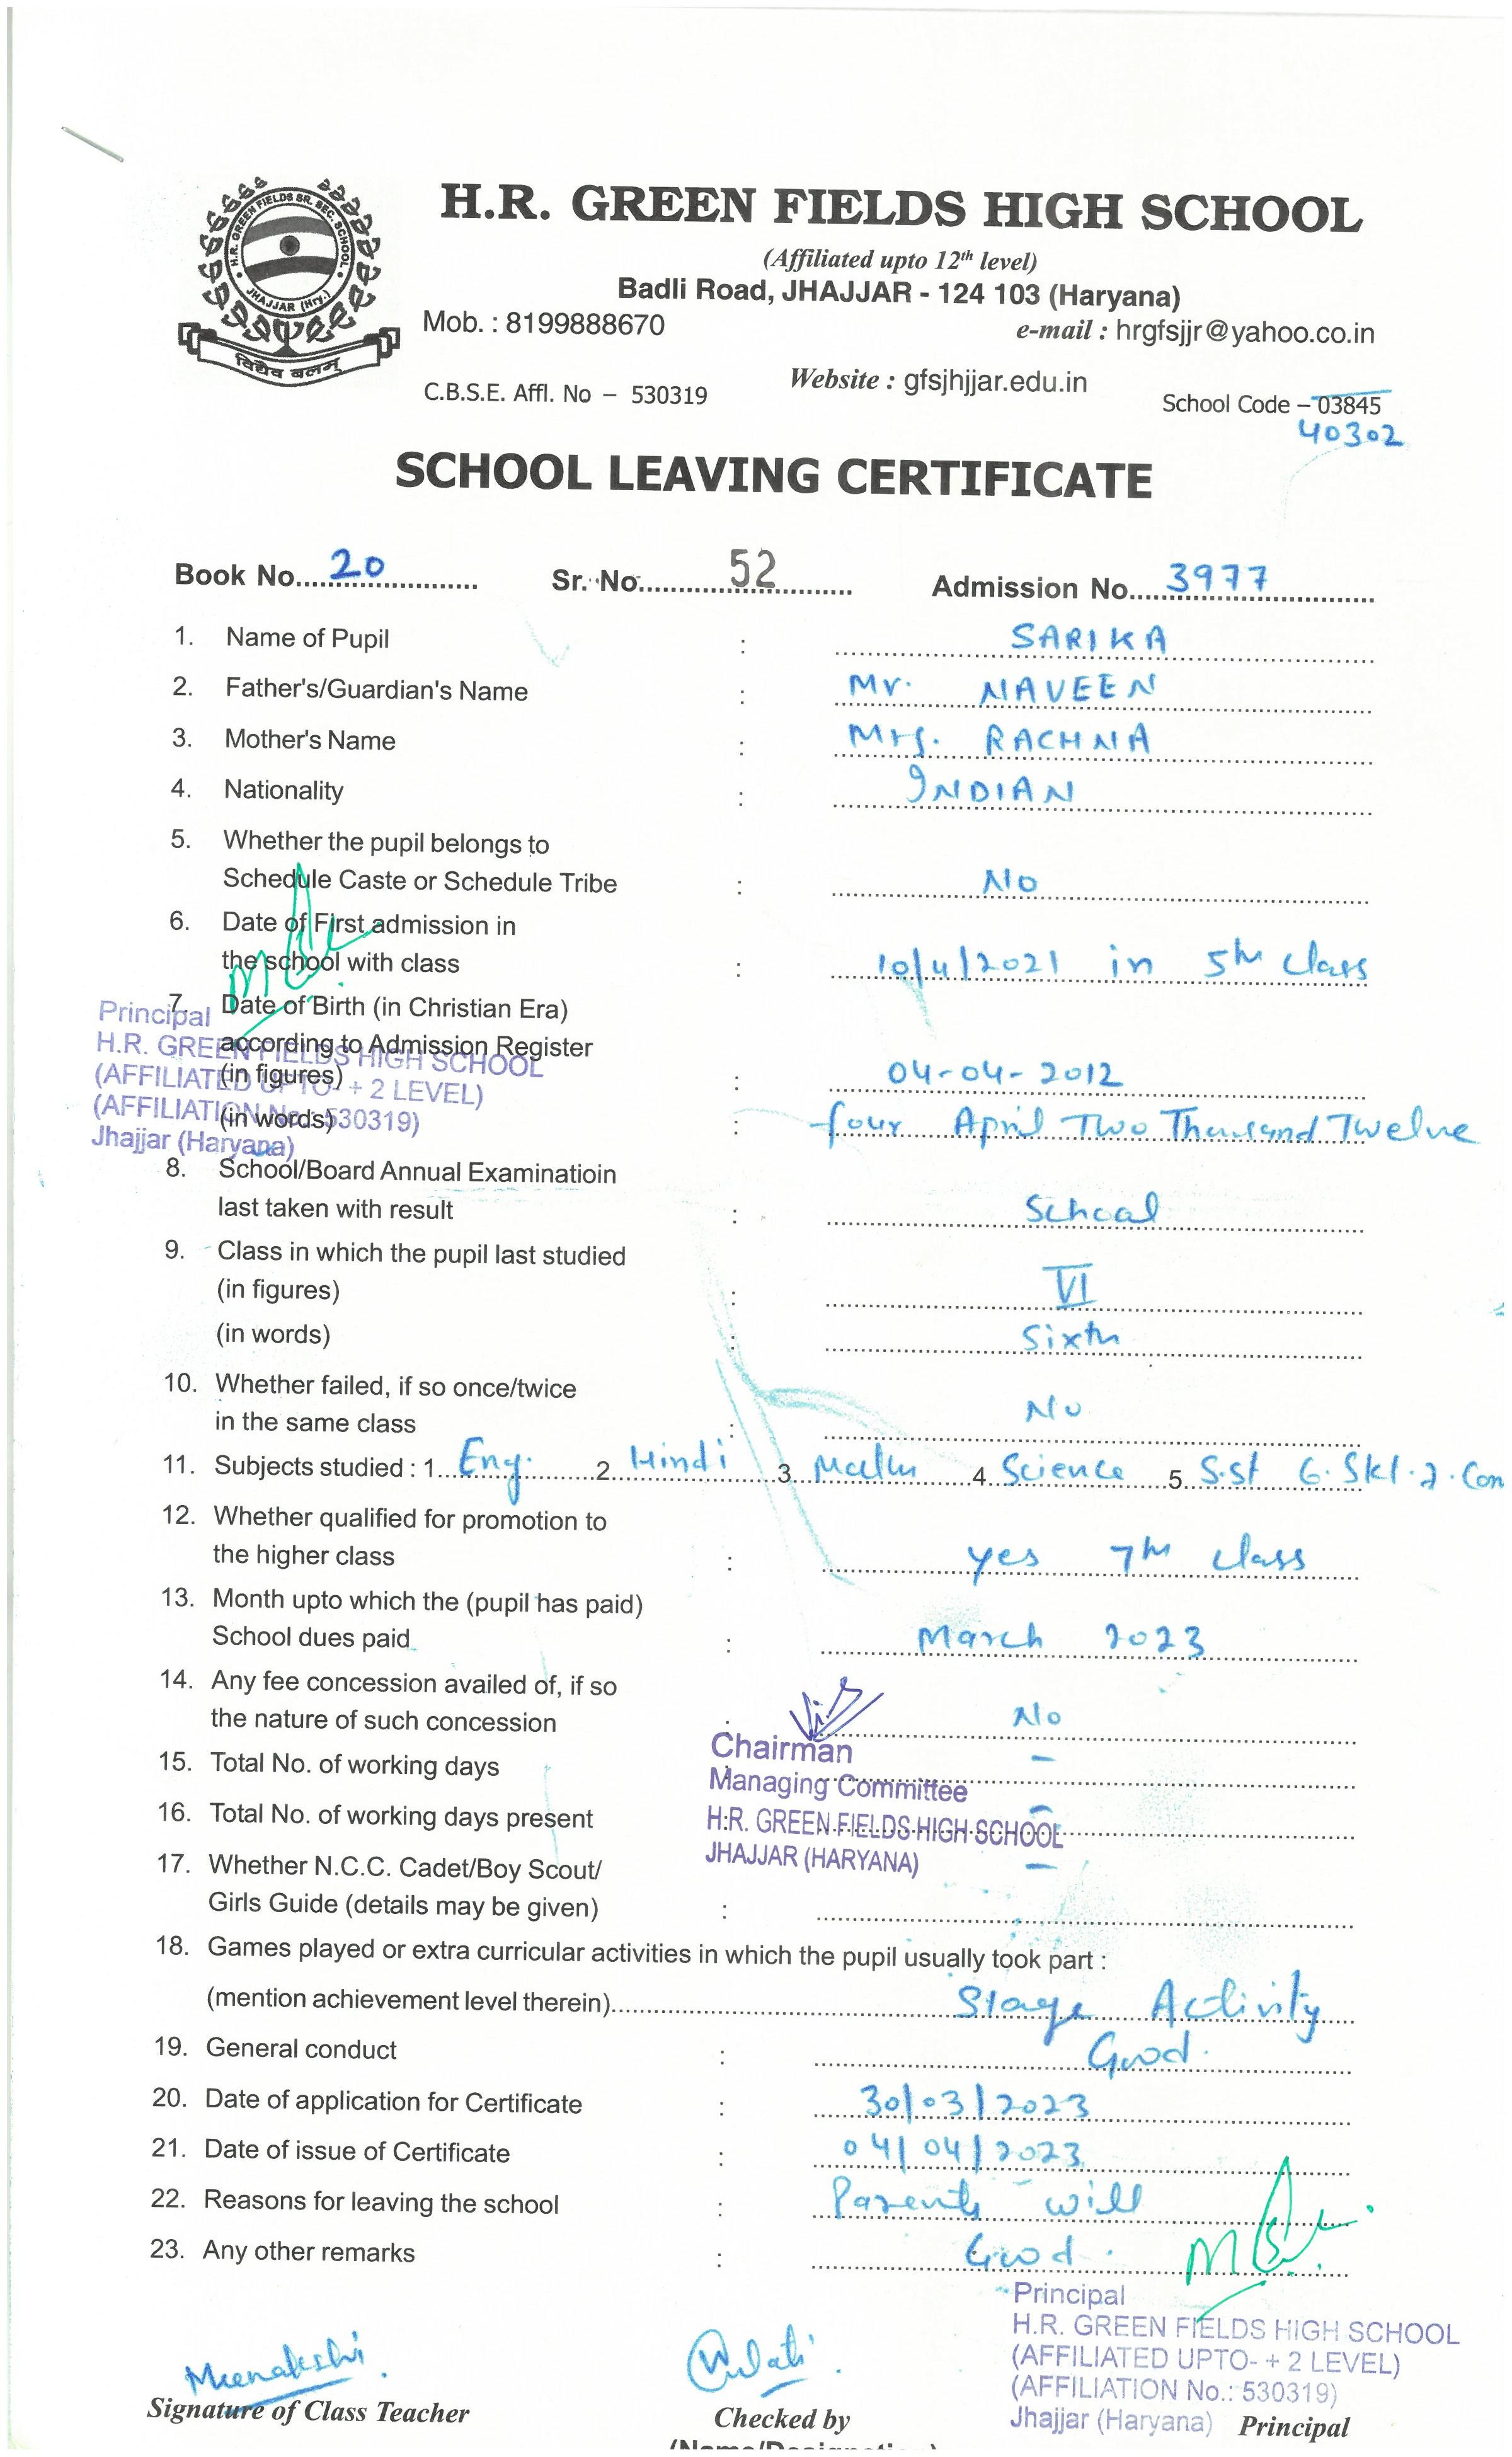 H.R. GREEN FIELDS SR. SEC. SCHOOL
JHAJJAR (Hry.)
विद्यैव बलम्
H.R. GREEN FIELDS HIGH SCHOOL
(Affiliated upto 12th level)
Badli Road, JHAJJAR - 124 103 (Haryana)
Mob. : 8199888670 e-mail : hrgfsjjr@yahoo.co.in
C.B.S.E. Affl. No – 530319 Website : gfsjhjjar.edu.in School Code – 03845
40302
SCHOOL LEAVING CERTIFICATE
Book No. 20 Sr. No. 52 Admission No. 3977
1. Name of Pupil : SARIKA
2. Father's/Guardian's Name : Mr. NAVEEN
3. Mother's Name : Mrs. RACHNA
4. Nationality : INDIAN
5. Whether the pupil belongs to
Schedule Caste or Schedule Tribe : No
6. Date of First admission in
the school with class : 10/4/2021 in 5th class
7. Date of Birth (in Christian Era)
according to Admission Register
(in figures) : 04-04-2012
(in words) : four April Two Thousand Twelve
Principal
H.R. GREEN FIELDS HIGH SCHOOL
(AFFILIATED UPTO- + 2 LEVEL)
(AFFILIATION No.: 530319)
Jhajjar (Haryana)
8. School/Board Annual Examinatioin
last taken with result : School
9. Class in which the pupil last studied
(in figures) : VI
(in words) : Sixth
10. Whether failed, if so once/twice
in the same class : No
11. Subjects studied : 1. Eng. 2. Hindi 3. Maths 4. Science 5. S.st 6. Skt. 7. Com
12. Whether qualified for promotion to
the higher class : yes 7th class
13. Month upto which the (pupil has paid)
School dues paid : March 2023
14. Any fee concession availed of, if so
the nature of such concession : No
15. Total No. of working days –
16. Total No. of working days present –
17. Whether N.C.C. Cadet/Boy Scout/ –
Girls Guide (details may be given) :
Chairman
Managing Committee
H.R. GREEN FIELDS HIGH SCHOOL
JHAJJAR (HARYANA)
18. Games played or extra curricular activities in which the pupil usually took part :
(mention achievement level therein) Stage Activity
19. General conduct : Good.
20. Date of application for Certificate : 30/03/2023
21. Date of issue of Certificate : 04/04/2023
22. Reasons for leaving the school : Parents will
23. Any other remarks : Good.
Principal
H.R. GREEN FIELDS HIGH SCHOOL
(AFFILIATED UPTO- + 2 LEVEL)
(AFFILIATION No.: 530319)
Jhajjar (Haryana) Principal
Meenakshi
Signature of Class Teacher Checked by